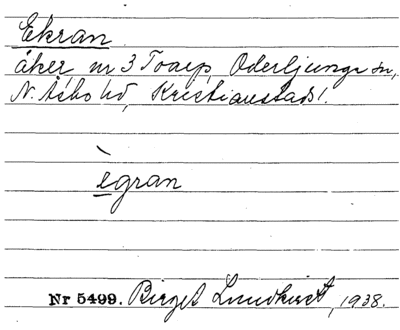 Ekran
åker, nr 3 Toarp, Oderljunga sn,
N. Åsbo hd, Kristianstads l.
ègran
Nr 5499. Birget Lundkvist, 1938.